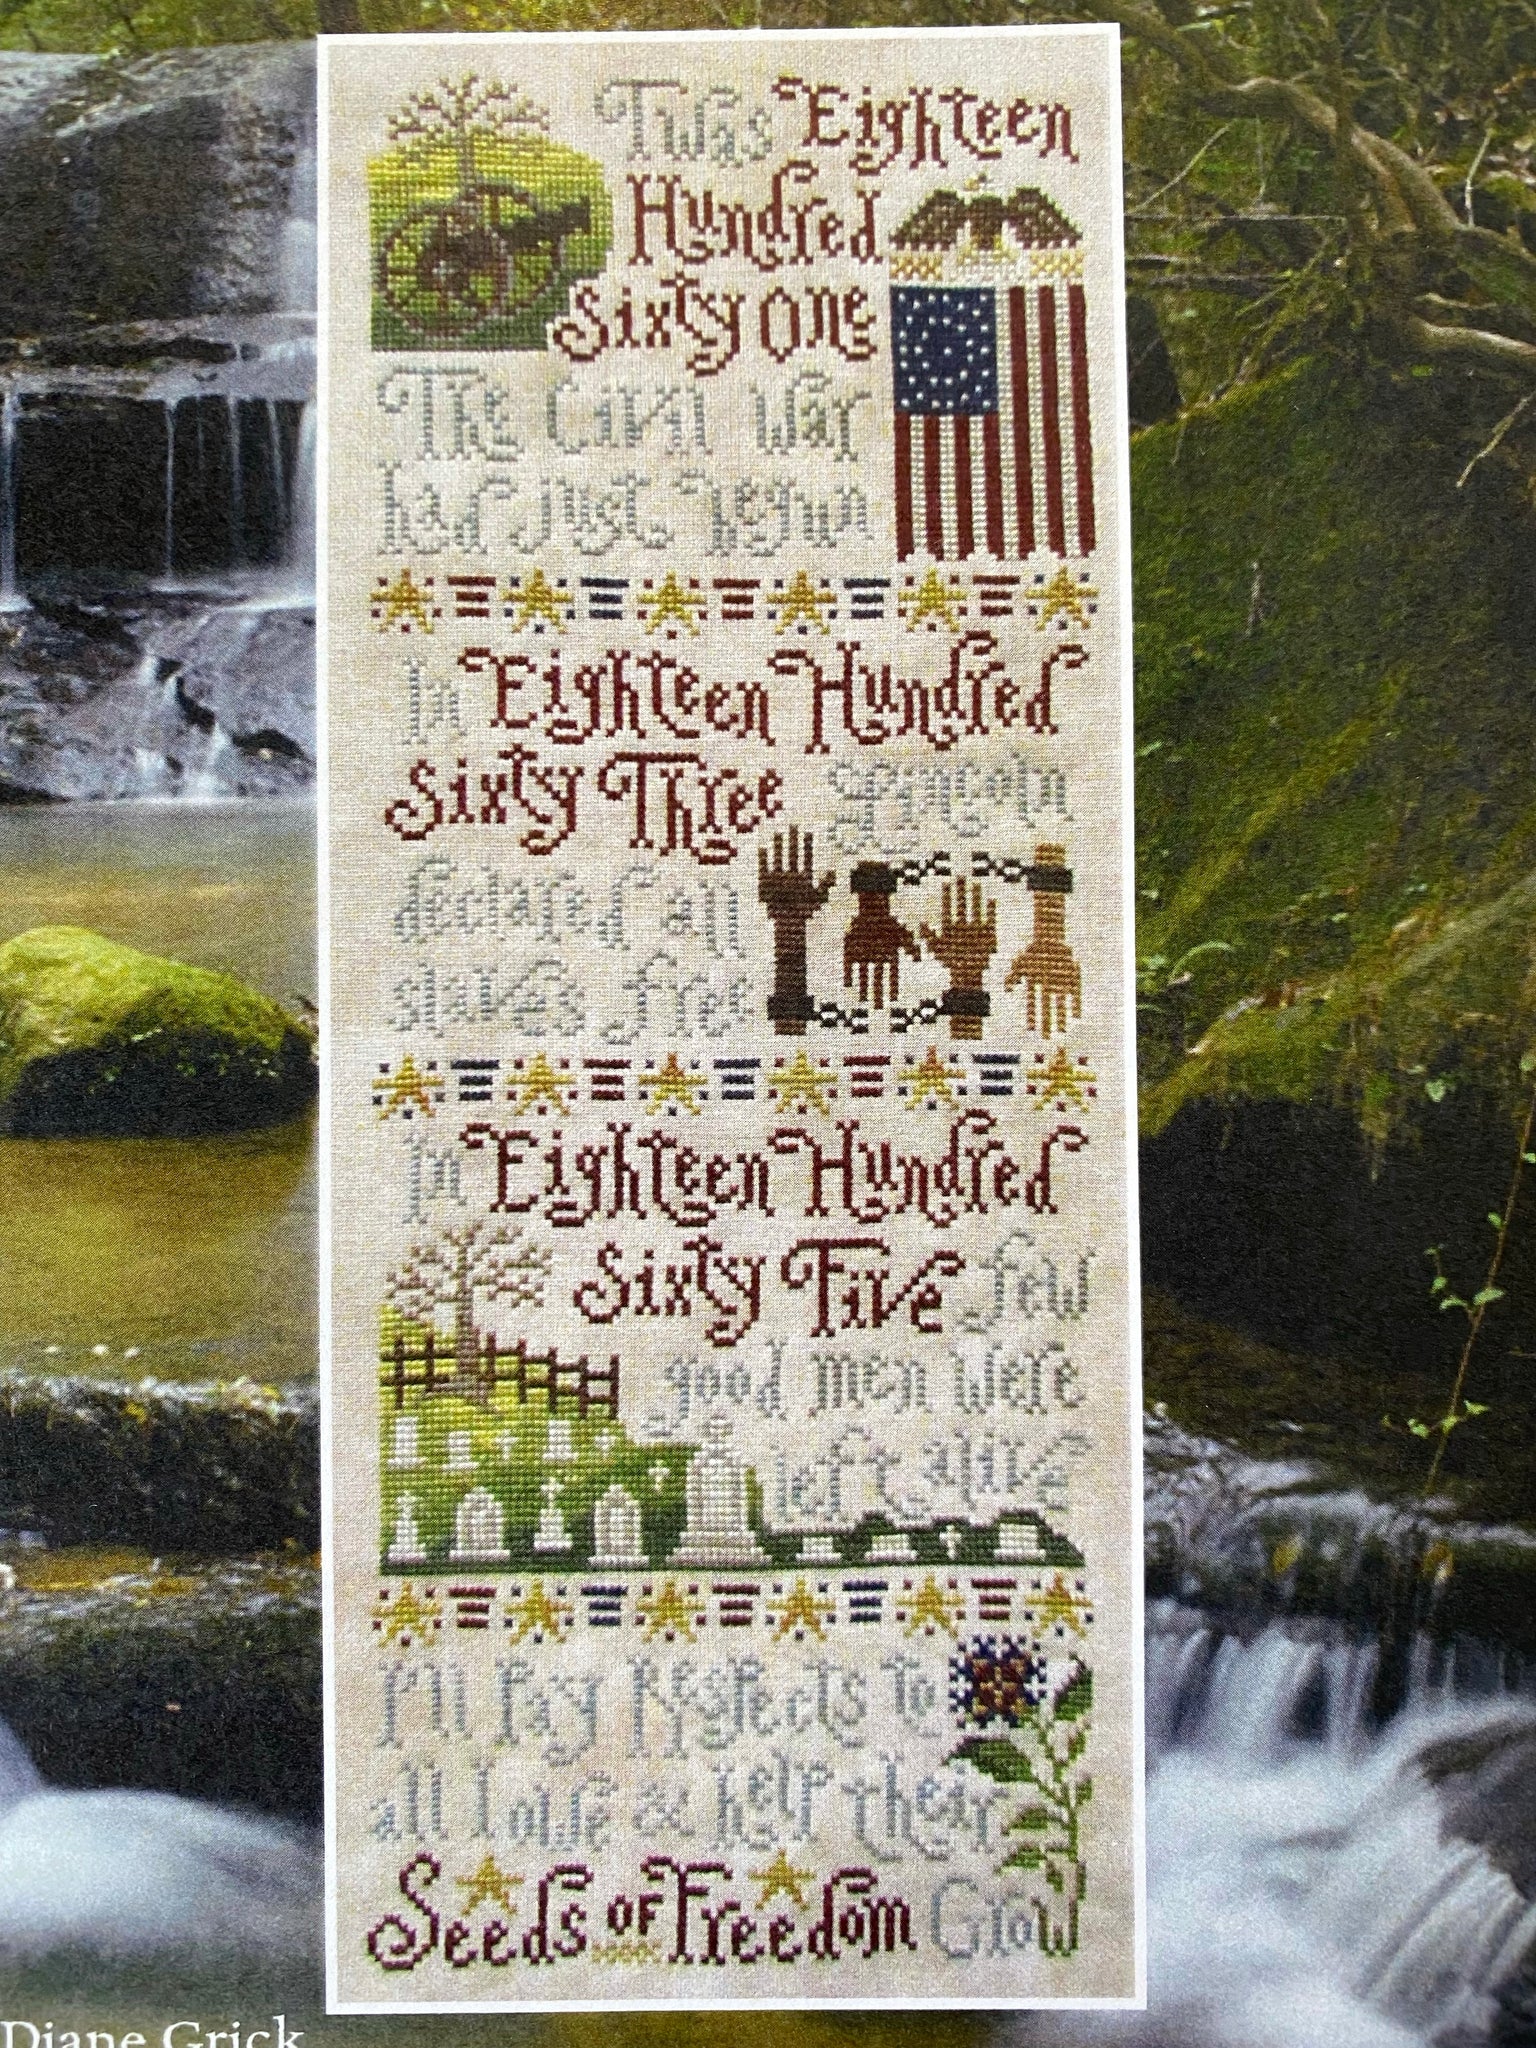 Twas Eighteen
Hundred
Sixty One
The Civil War
had just begun
In Eighteen Hundred
Sixty Three Lincoln
declared all
slaves free
In Eighteen Hundred
Sixty Five few
good men were
left alive
I'll Pay Respects to
all I owe & help their
Seeds of Freedom Grow
Diane Grick